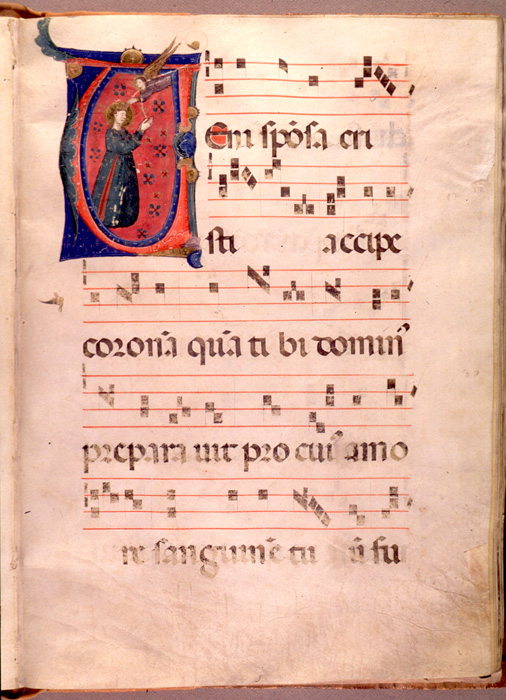 Veni spōsa cri
sti accipe
coronā quā ti bi domin᷒
prepara uit pro cui᷒ amo
re sanguinē tu ū fu